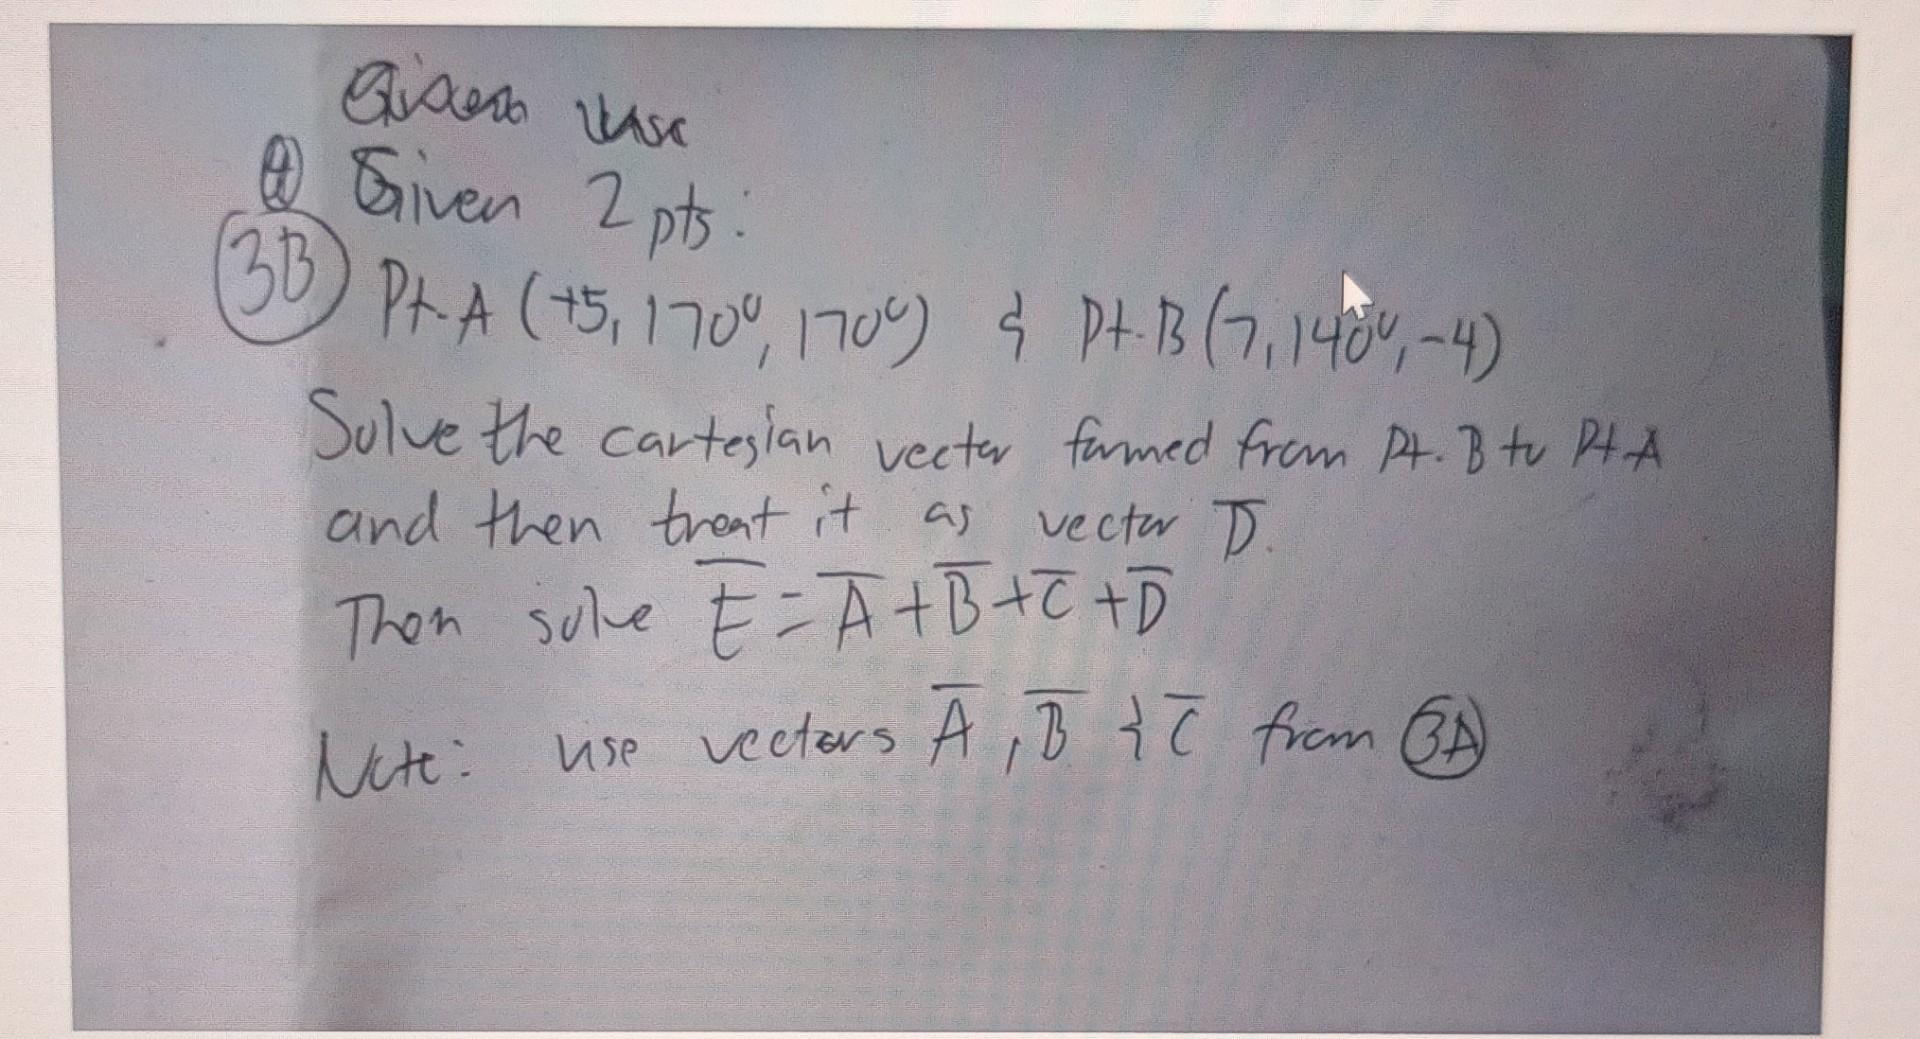 Given use
Given 2 pts:
3B Pt. A (+5, 170°, 170°) & Pt. B (7, 140°, -4)
Solve the cartesian vector formed from Pt. B to Pt A
and then treat it as vector D̅.
Then solve E̅ = A̅ + B̅ + C̅ + D̅
Note: use vectors A̅, B̅ & C̅ from 3A